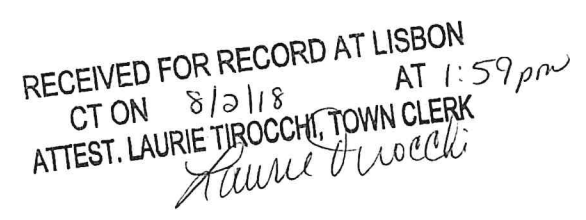 RECEIVED FOR RECORD AT LISBON
CT ON 8/2/18 AT 1:59 pm
ATTEST. LAURIE TIROCCHI, TOWN CLERK
Laurie Tirocchi